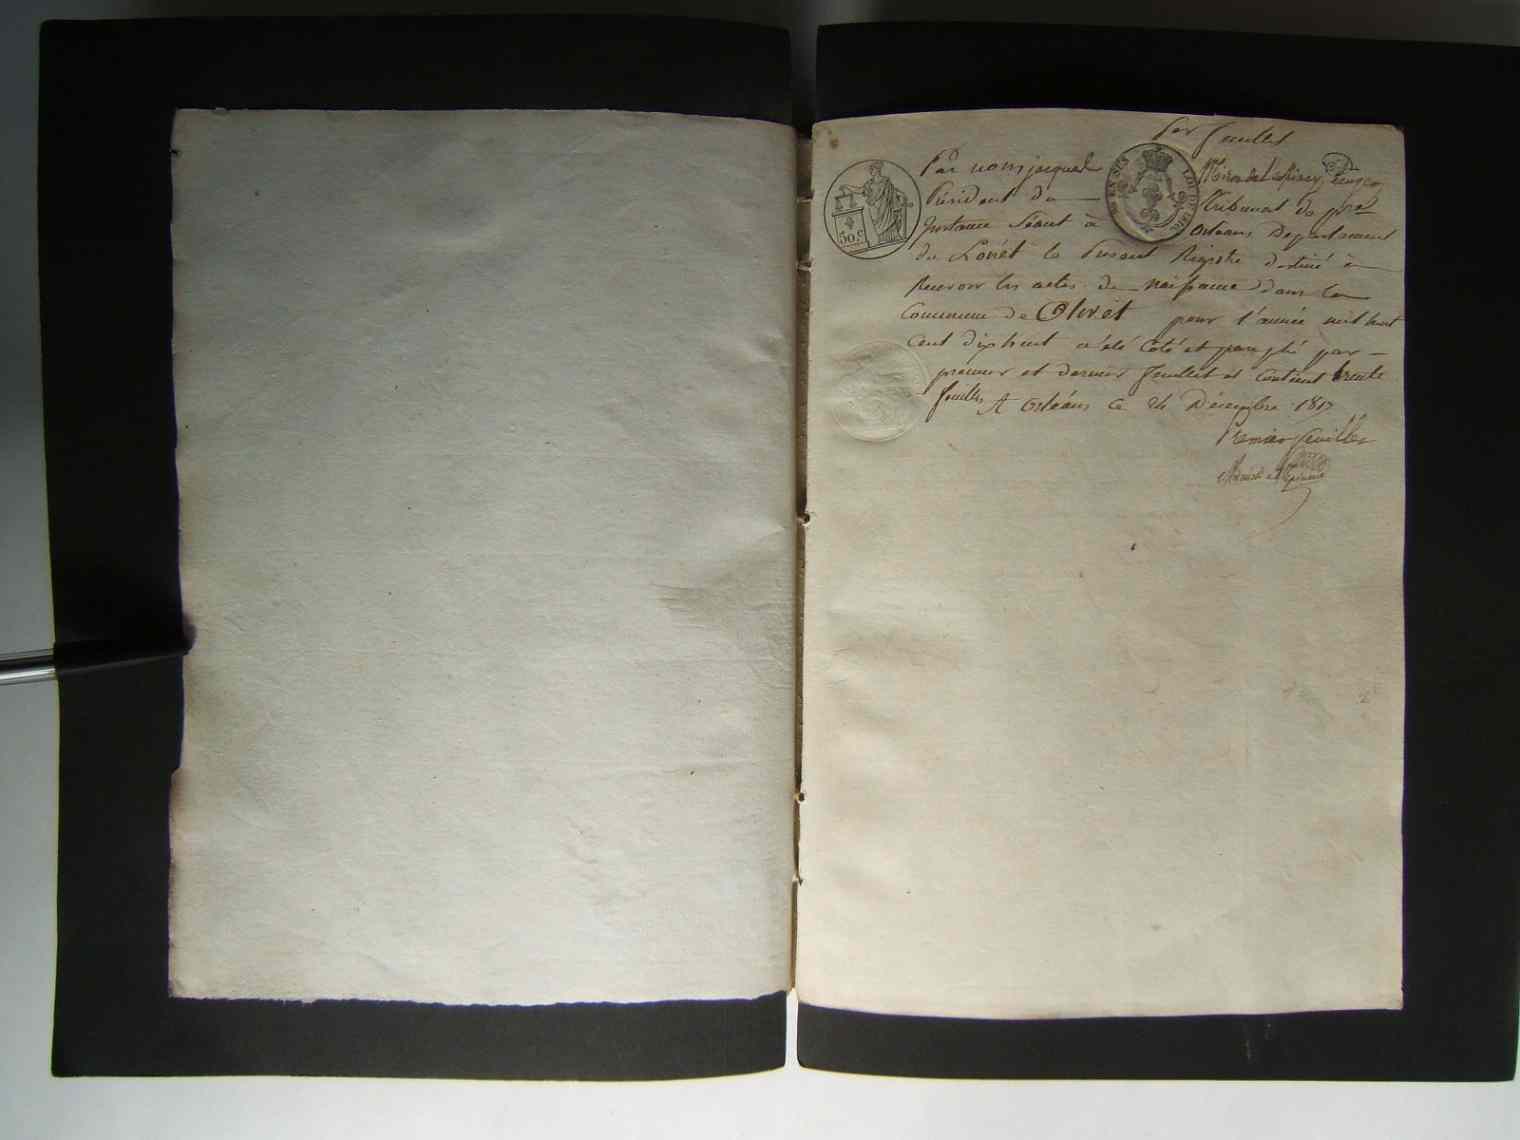 1er feuillet
Par nous jacques Miron de Lespinay,
Président du Tribunal de pre
Instance Séant à Orléans Département
du Loiret le Présent Registre destiné à
Recevoir les actes de naissance dans la
Commune de Olivet pour l'année mil huit
Cent dix huit a été Coté et paraphé par
premier et dernier feuillet et Contient trente
feuilles A Orléans Ce 24 Décembre 1817
Premier feuillet
50 C
EN SUS
LOI DE 1816